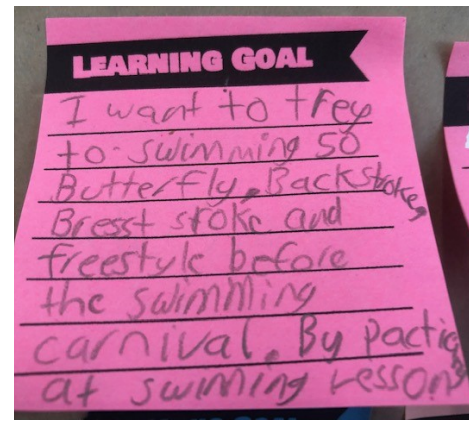 LEARNING GOAL
I want to trey
to swimming 50
Butterfly, Backstroke,
Bresst stroke and
freestyle before
the swimming
carnival. By pactic
at swiming lessons